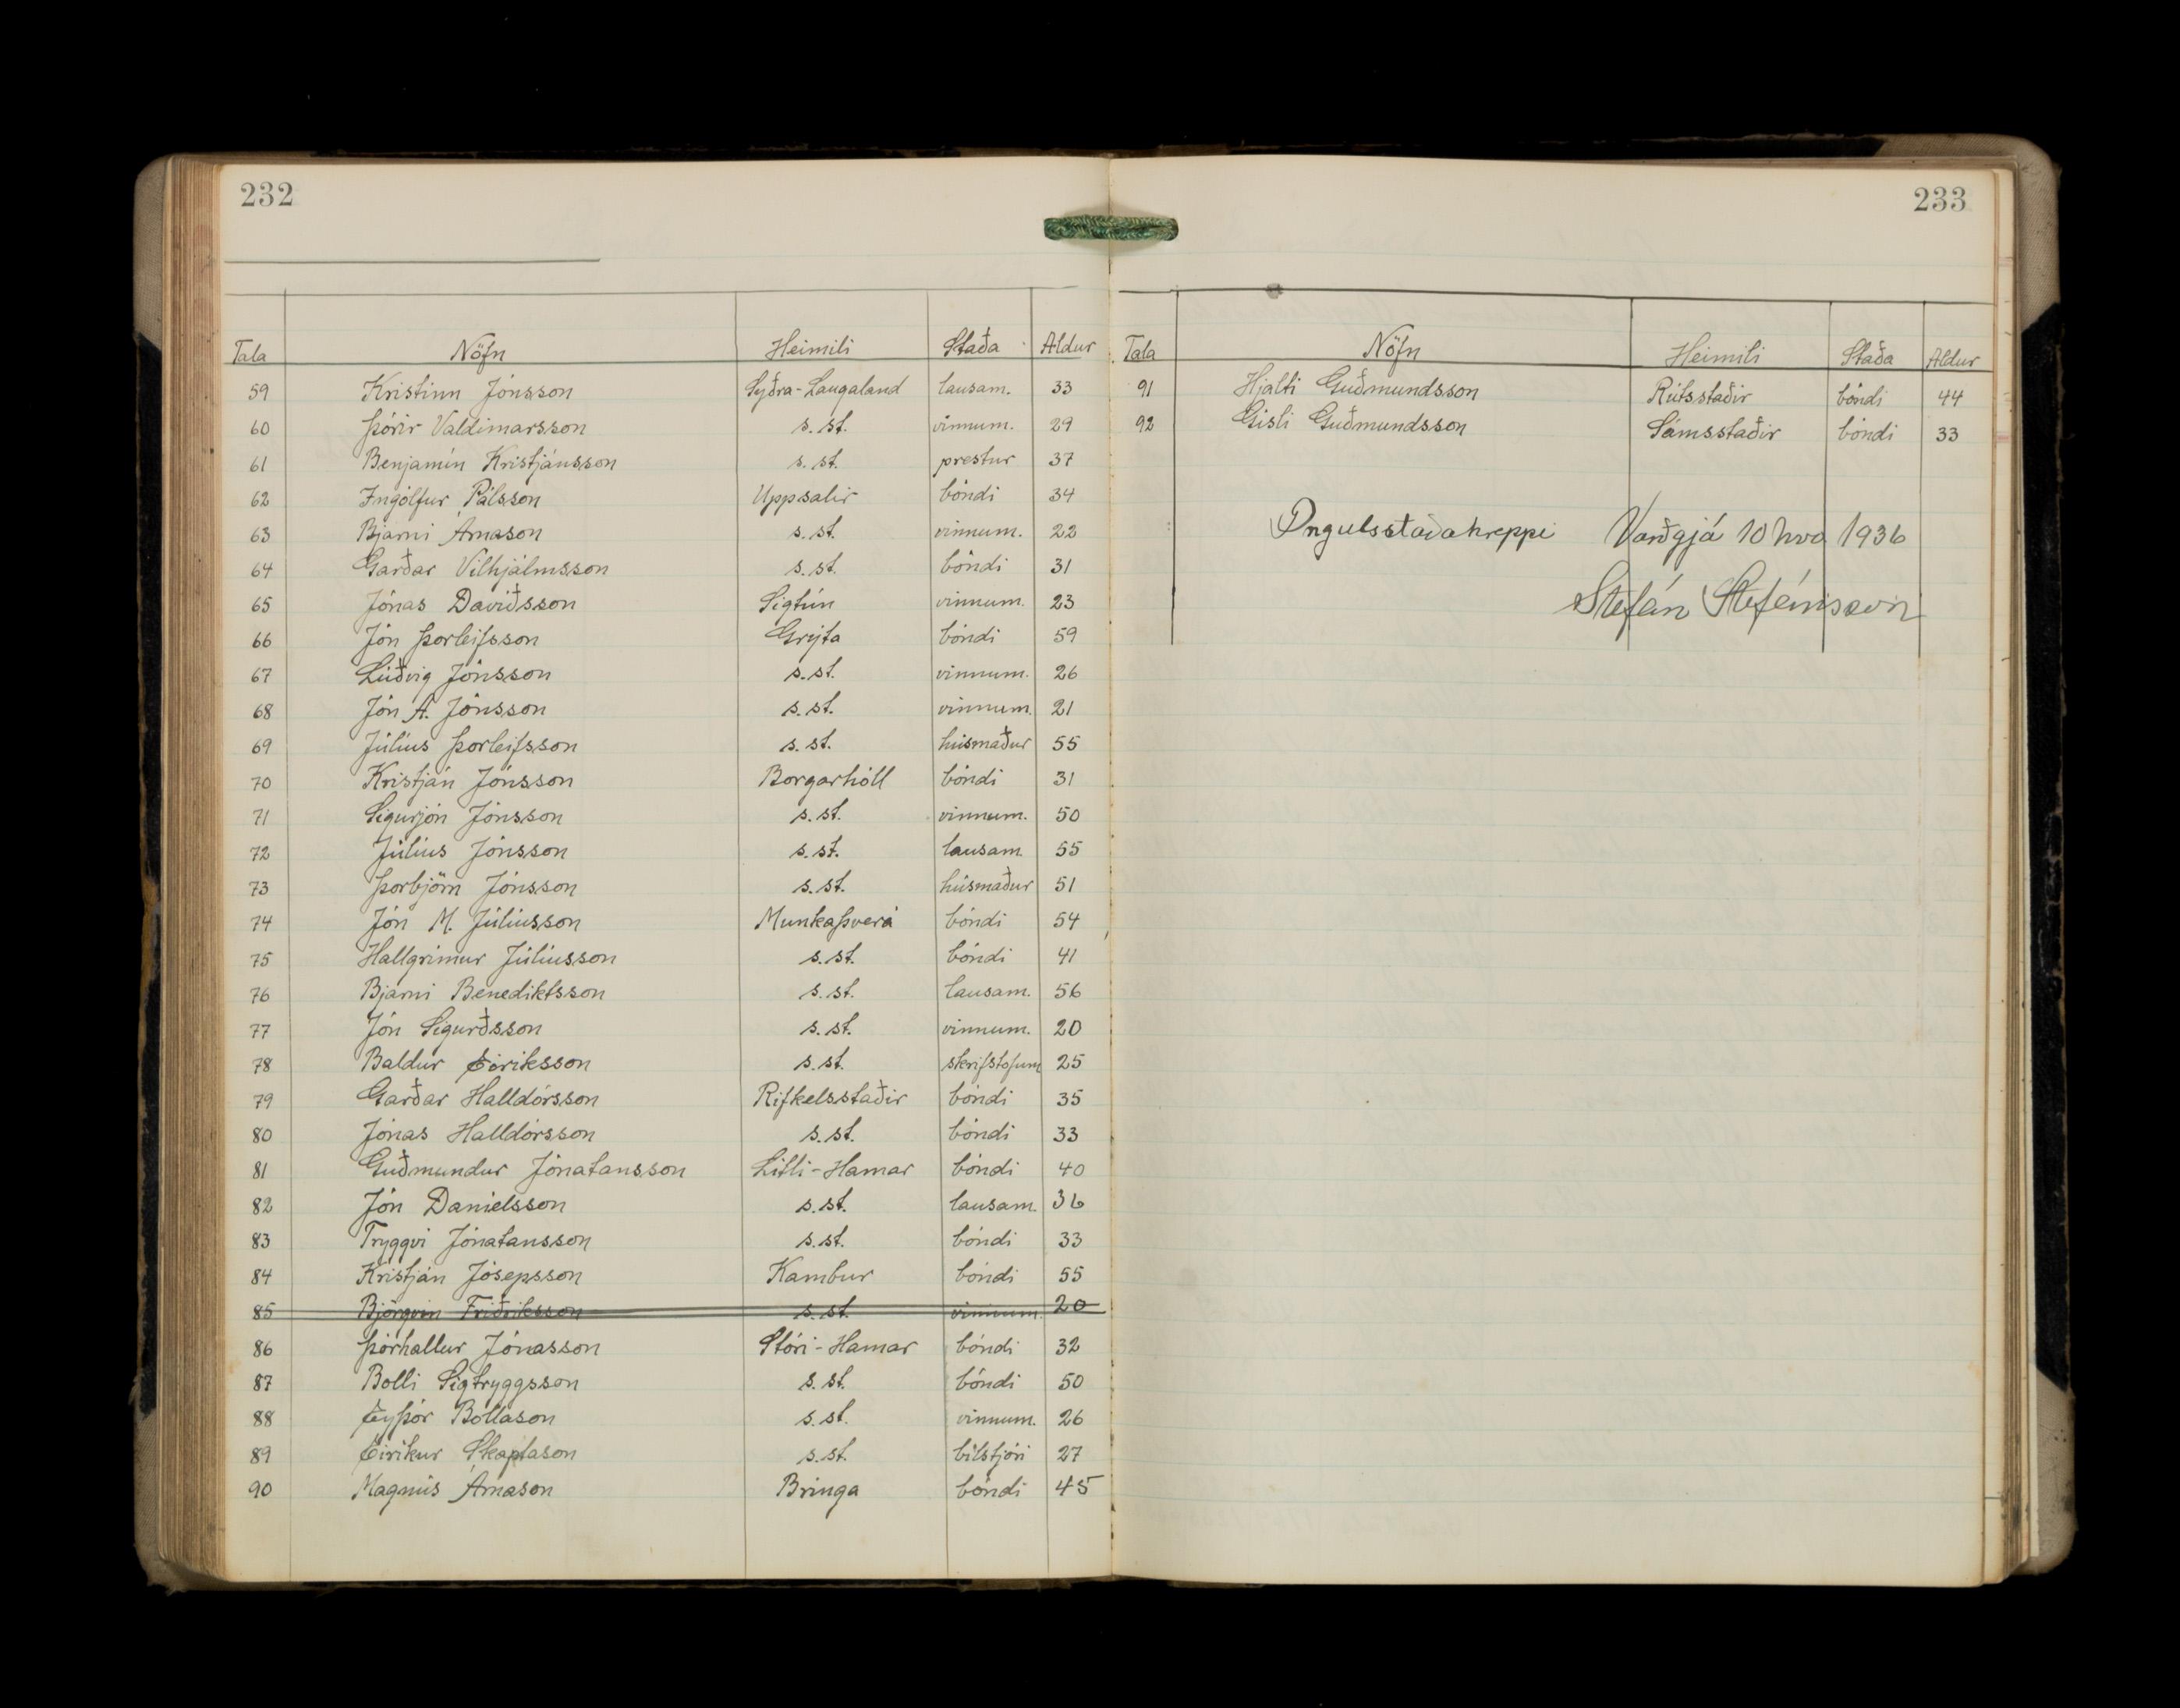 232
Tala Nöfn Heimili Staða Aldur
59 Kristinn Jónsson Syðra-Laugaland lausam. 33
60 Þórir Valdimarsson s. st. vinnum. 29
61 Benjamín Kristjánsson s. st. prestur 37
62 Ingólfur Pálsson Uppsalir bóndi 34
63 Bjarni Árnason s. st. vinnum. 22
64 Garðar Vilhjálmsson s. st. bóndi 31
65 Jónas Davíðsson Sigtún vinnum. 23
66 Jón Þorleifsson Grýta bóndi 59
67 Lúðvig Jónsson s. st. vinnum. 26
68 Jón A. Jónsson s. st. vinnum. 21
69 Júlíus Þorleifsson s. st. húsmaður 55
70 Kristján Jónsson Borgarhóll bóndi 31
71 Sigurjón Jónsson s. st. vinnum. 50
72 Júlíus Jónsson s. st. lausam. 55
73 Þorbjörn Jónsson s. st. húsmaður 51
74 Jón M. Júlíusson Munkaþverá bóndi 54
75 Hallgrímur Júlíusson s. st. bóndi 41
76 Bjarni Benediktsson s. st. lausam. 56
77 Jón Sigurðsson s. st. vinnum. 20
78 Baldur Eiríksson s. st. skrifstofum 25
79 Garðar Halldórsson Rifkelsstaðir bóndi 35
80 Jónas Halldórsson s. st. bóndi 33
81 Guðmundur Jónatansson Litli-Hamar bóndi 40
82 Jón Daníelsson s. st. lausam. 36
83 Tryggvi Jónatansson s. st. bóndi 33
84 Kristján Jósepsson Kambur bóndi 55
85 Björgvin Friðriksson s. st. vinnum. 20
86 Þórhallur Jónasson Stóri-Hamar bóndi 32
87 Bolli Sigtryggsson s. st. bóndi 50
88 Eyþór Bollason s. st. vinnum. 26
89 Eiríkur Skaptason s. st. bílstjóri 27
90 Magnús Árnason Bringa bóndi 45
233
Tala Nöfn Heimili Staða Aldur
91 Hjalti Guðmundsson Rútsstaðir bóndi 44
92 Gísli Guðmundsson Sámsstaðir bóndi 33
Öngulsstaðahreppi Varðgjá 10 1936
Stefán Stefánsson